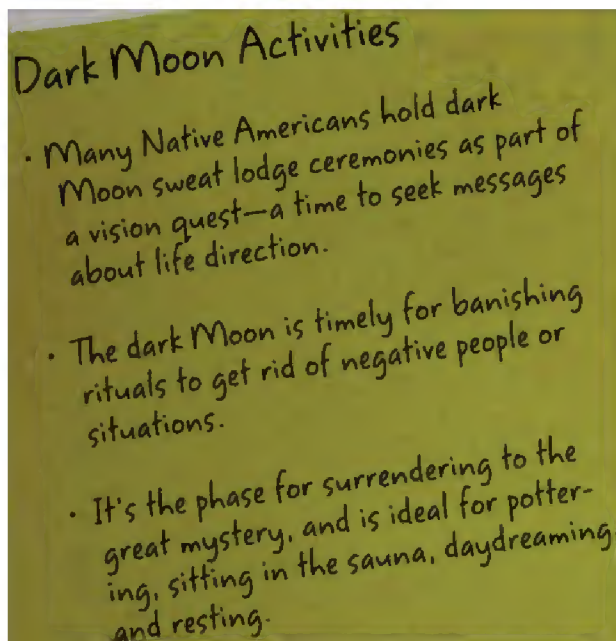 Dark Moon Activities
· Many Native Americans hold dark
Moon sweat lodge ceremonies as part of
a vision quest—a time to seek messages
about life direction.
· The dark Moon is timely for banishing
rituals to get rid of negative people or
situations.
· It's the phase for surrendering to the
great mystery, and is ideal for potter-
ing, sitting in the sauna, daydreaming,
and resting.